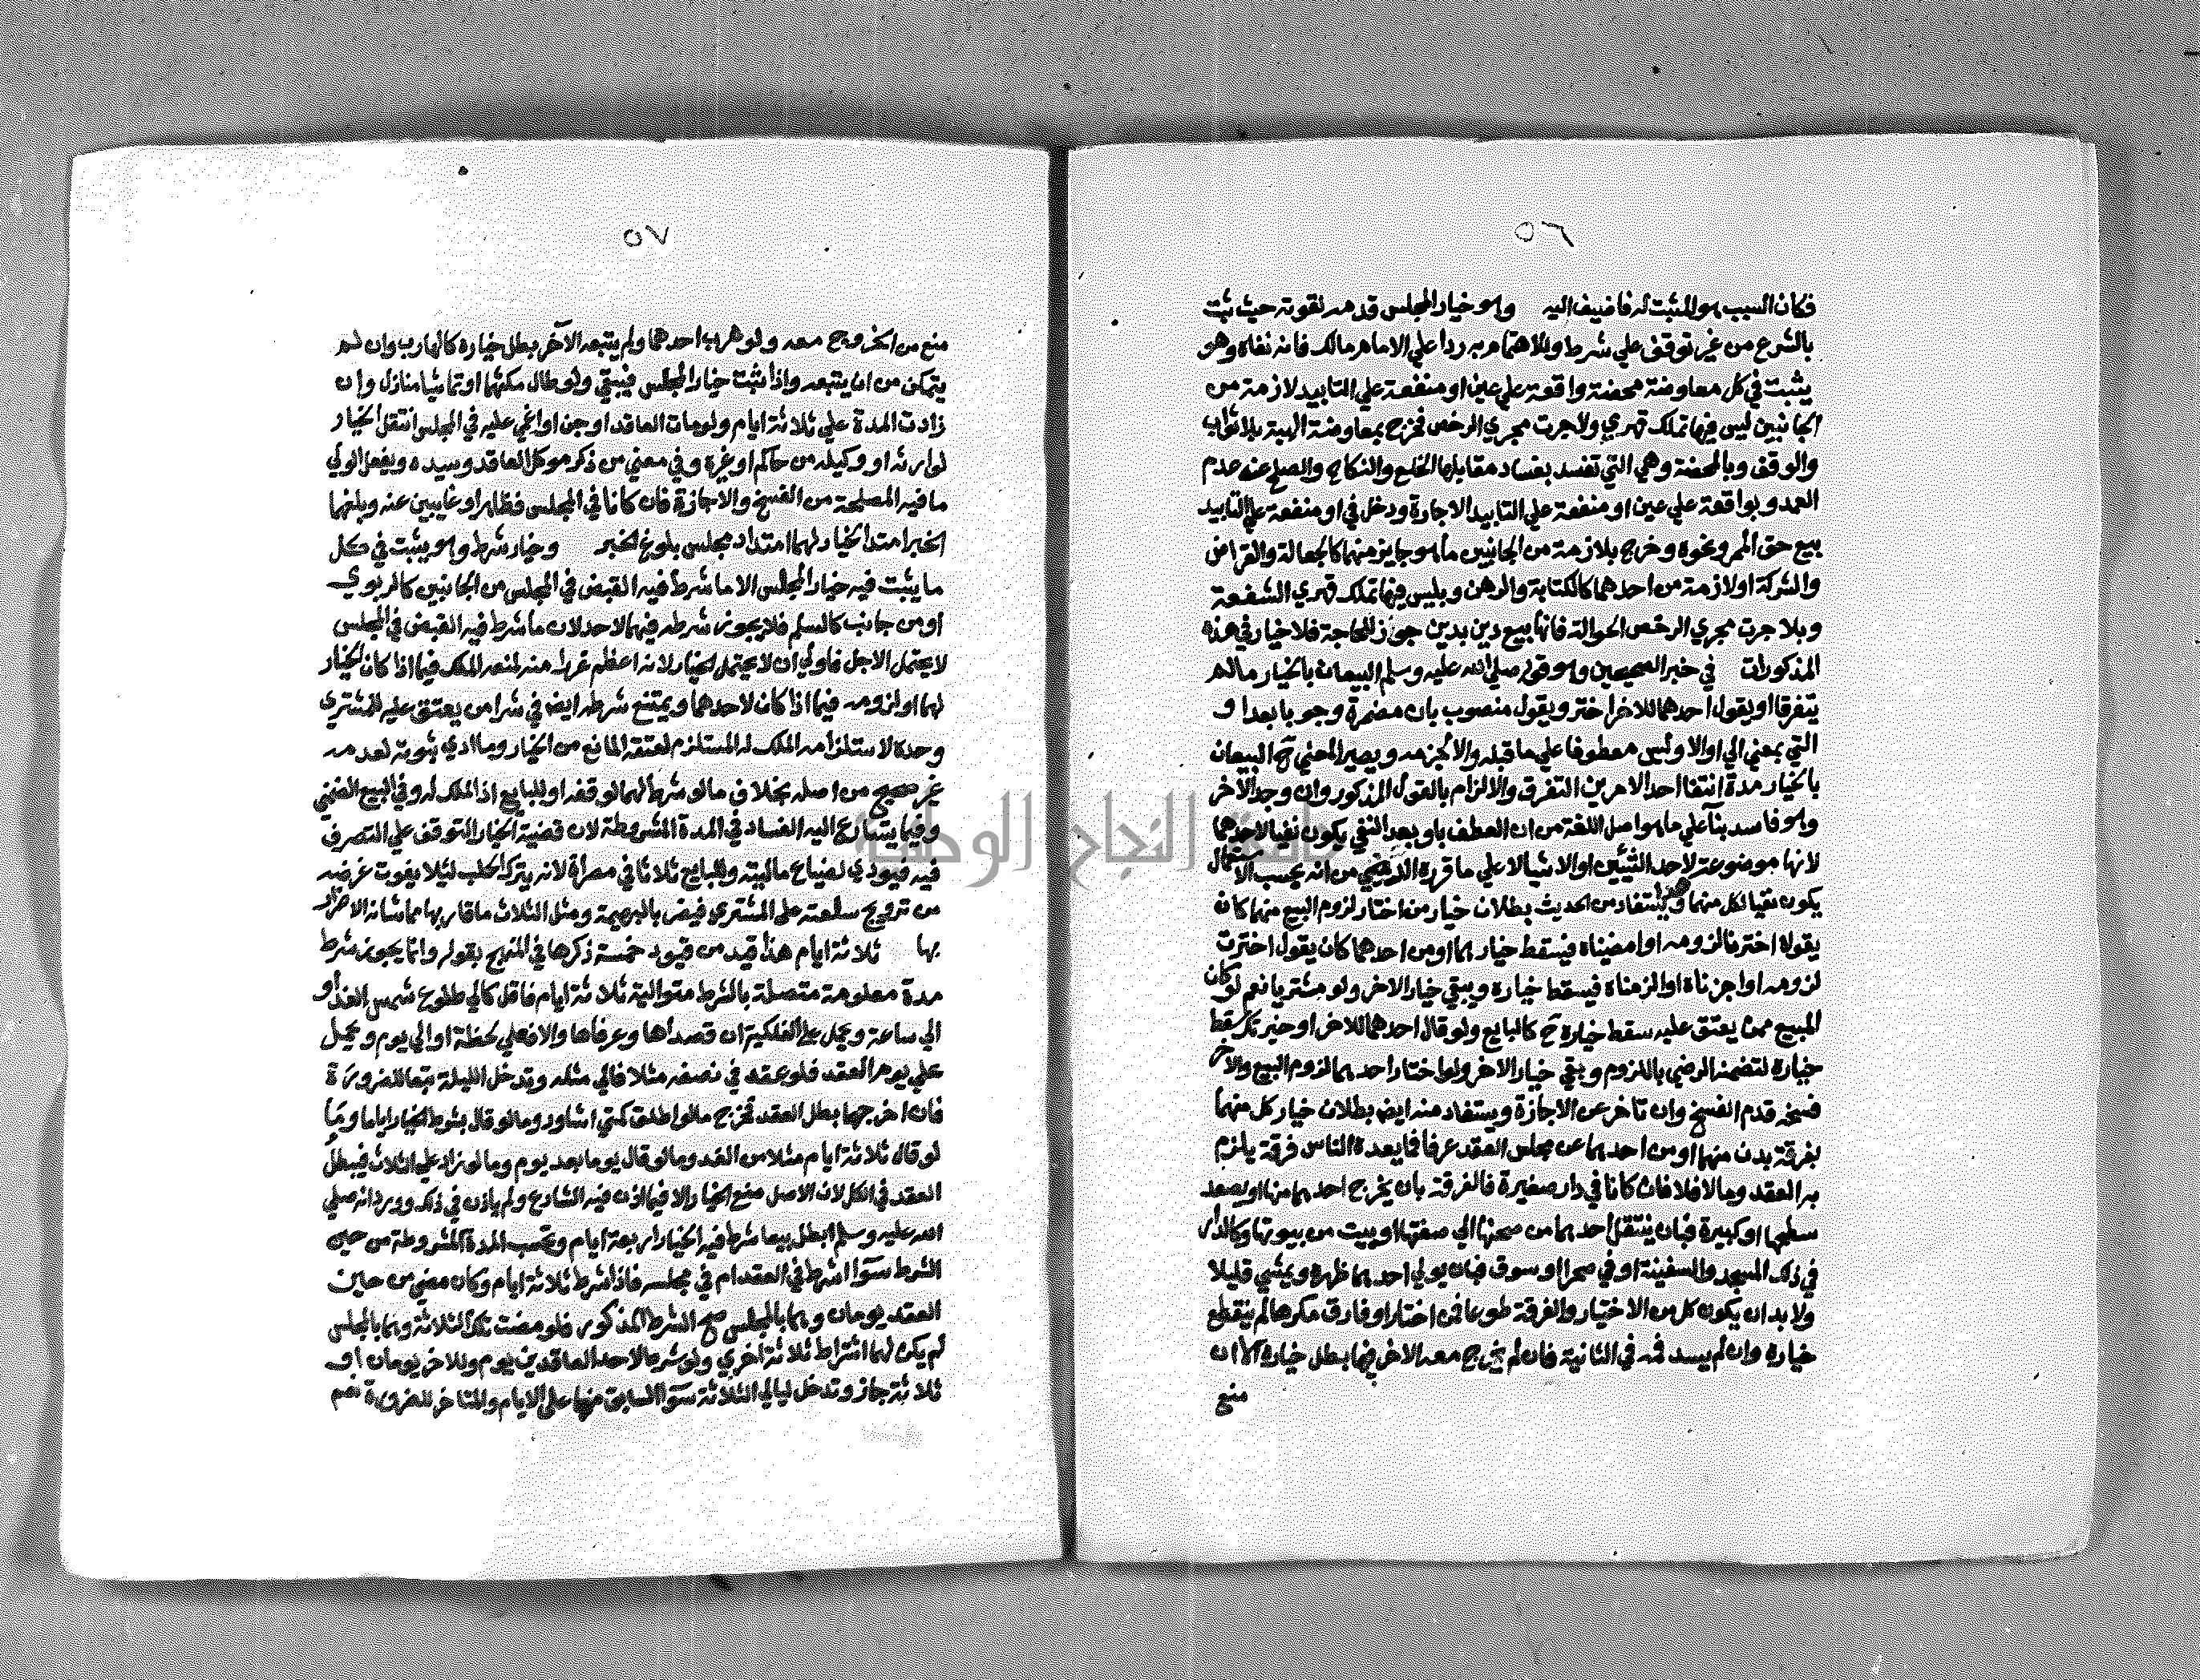 ٥٦
فكان السبب هو المثبت له فاضيف اليه وهو خيار المجلس قدمه لقوته حيث ثبت
بالشرع من غير توقف علي شرط وللاهتمام به ردا علي الامام مالك فانه نفاه وهو
يثبت في كل معاوضة محضة واقعة علي عين او منفعة علي التابيد لازمة من
الجانبين ليس فيها تملك قهري ولا جرت مجري الرخص فخرج بمعاوضة الهبة بلا ثواب
والوقف وبالمحضة وهي التي تفسد بفساد مقابلها الخلع والنكاح والصلح عن دم
العمد وبواقعة علي عين او منفعة علي التابيد الاجارة ودخل في او منفعة علي التابيد
بيع حق الممر ونحوه وخرج بلازمة من الجانبين ما هو جايز منهما كالجعالة والقراض
والشركة او لازمة من احدهما كالكتابة والرهن وبليس فيها تملك قهري الشفعة
وبلا جرت مجري الرخص الحوالة فانها بيع دين بدين جوز للحاجة فلا خيار في هذه
المذكورات في خبر الصحيحين وهو قوله صلي الله عليه وسلم البيعان بالخيار ما لم
يتفرقا او يقول احدهما للاخر اختر ويقول منصوب بان مضمرة وجوبا بعد او
التي بمعني الي او الا وليس معطوفا علي ما قبله والا لجزمه ويصير المعني ح البيعان
بالخيار مدة انتفا احد الامرين التفرق والالزام بالقول المذكور وان وجد الآخر
وهو فاسد بنآ علي ما هو اصل اللغة من ان العطف باو بعد النفي يكون نفيا لاحدهما
لانها موضوعة لاحد الشيئين او الاشيا لا علي ما قرره الرضي من انه بحسب الاستعمال
يكون نفيا لكل منهما هذا ويستفاد من الحديث بطلان خيار من اختار لزوم البيع منهما كان
يقولا اخترنا لزومه او امضيناه فيسقط خيارهما او من احدهما كان يقول اخترت
لزومه او اجزناه او الزمناه فيسقط خياره ويبقي خيار الاخر ولو مشتريا نعم لو كان
المبيع ممن يعتق عليه سقط خياره ح كالبايع ولو قال احدهما للاخر اختر او خيرتك سقط
خياره لتضمنه الرضي باللزوم وبقي خيار الاخر ولو اختار احدهما لزوم البيع والاخر
فسخه قدم الفسخ وان تاخر عن الاجازة ويستفاد منه ايض بطلان خيار كل منهما
بفرقة بدن منهما او من احدهما عن مجلس العقد عرفا فما يعده الناس فرقة يلزم
به العقد وما لا فلا فان كانا في دار صغيرة فالفرقة بان يخرج احدهما منها او يصعد
سطحها او كبيرة فبان ينتقل احدهما من صحنها الي صفتها او بيت من بيوتها وكالدار
في ذلك المسجد والسفينة او في صحرا او سوق فبان يولي احدهما ظهره ويمشي قليلا
ولا بد ان يكون كل من الاختيار والفرقة طوعا فمن اختار او فارق مكرها لم ينقطع
خياره وان لم يسد فمه في الثانية فان لم يخرج معه الاخر فيها بطل خياره الا ان
منع
٥٧
منع من الخروج معه ولو هرب احدهما ولم يتبعه الآخر بطل خياره كالهارب وان لم
يتمكن من ان يتبعه واذا ثبت خيار المجلس فيبقي ولو طال مكثهما او تماشيا منازل وان
زادت المدة علي ثلاثة ايام ولو مات العاقد او جن او اغمي عليه في المجلس انتقل الخيار
لوارثه او وكيله من حاكم او غيره وفي معني من ذكر موكل العاقد وسيده ويفعل الولي
ما فيه المصلحة من الفسخ والاجازة فان كانا في المجلس فظاهر او غايبين عنه وبلغهما
الخبر امتد الخيار لهما امتداد مجلس بلوغ الخبر وخيار شرط وهو يثبت في كل
ما يثبت فيه خيار المجلس الا ما شرط فيه القبض في المجلس من الجانبين كالربوي
او من جانب كالسلم فلا يجوز شرطه فيهما لاحد لان ما شرط فيه القبض في المجلس
لا يحتمل الاجل فاولي ان لا يحتمل الخيار لانه اعظم غررا منه لمنعه الملك فيما اذا كان الخيار
لهما او لزومه فيما اذا كان لاحدهما ويمتنع شرطه ايض في شرا من يعتق عليه للمشتري
وحده لاستلزامه الملك له المستلزم لعتقه المانع من الخيار وما ادي ثبوته لعدمه
غير صحيح من اصله بخلاف ما لو شرط لهما لوقفه او للبايع اذ الملك له وفي البيع الضمني
وفيما يتسارع اليه الفساد في المدة المشروطة لان قضية الخيار التوقف علي التصرف
فيه فيودي لضياع ماليته وللبايع ثلاثا في مصراة لانه يترك الحلب ليلا يفوت غرضه
من ترويج سلعته علي المشتري فيضر بالبهيمة ومثل الثلاث ما قاربها مما شانه الاضرار
بها ثلاثة ايام هذا قيد من قيود خمسة ذكرها في المنهج بقوله وانما يجوز شرط
مدة معلومة متصلة بالشرط متوالية ثلاثة ايام فاقل كالي طلوع شمس الغد او
الي ساعة وتحمل علي الفلكية ان قصداها وعرفاها والا فعلي لحظة او الي يوم ويحمل
علي يوم العقد فلو عقد في نصفه مثلا فالي مثله وتدخل الليلة تبعا للضرورة
فان اخرجها بطل العقد فخرج ما لو اطلق كمتي اشاور وما لو قال بشرط الخيار اياما وما
لو قال ثلاثة ايام مثلا من الغد وما لو قال يوما بعد يوم وما لو زاد علي الثلاث فيبطل
العقد في الكل لان الاصل منع الخيار الا فيما اذن فيه الشارع ولم ياذن في ذلك وورد انه صلي
الله عليه وسلم ابطل بيعا شرط فيه الخيار اربعة ايام وتحسب المدة المشروطة من حين
الشرط سوآ اشرط في العقد ام في مجلسه فاذا شرط ثلاثة ايام وكان مضي من حين
العقد يومان وهما بالمجلس صح الشرط المذكور فلو مضت تلك الثلاثة وهما بالمجلس
لم يكن لهما اشتراط ثلاثة اخري ولو شرط لاحد العاقدين يوم وللاخر يومان او
ثلاثة جاز وتدخل ليالي الثلاثة سوآ السابق منها علي الايام والمتاخر للضرورة نعم
جامعة النجاح الوطنية